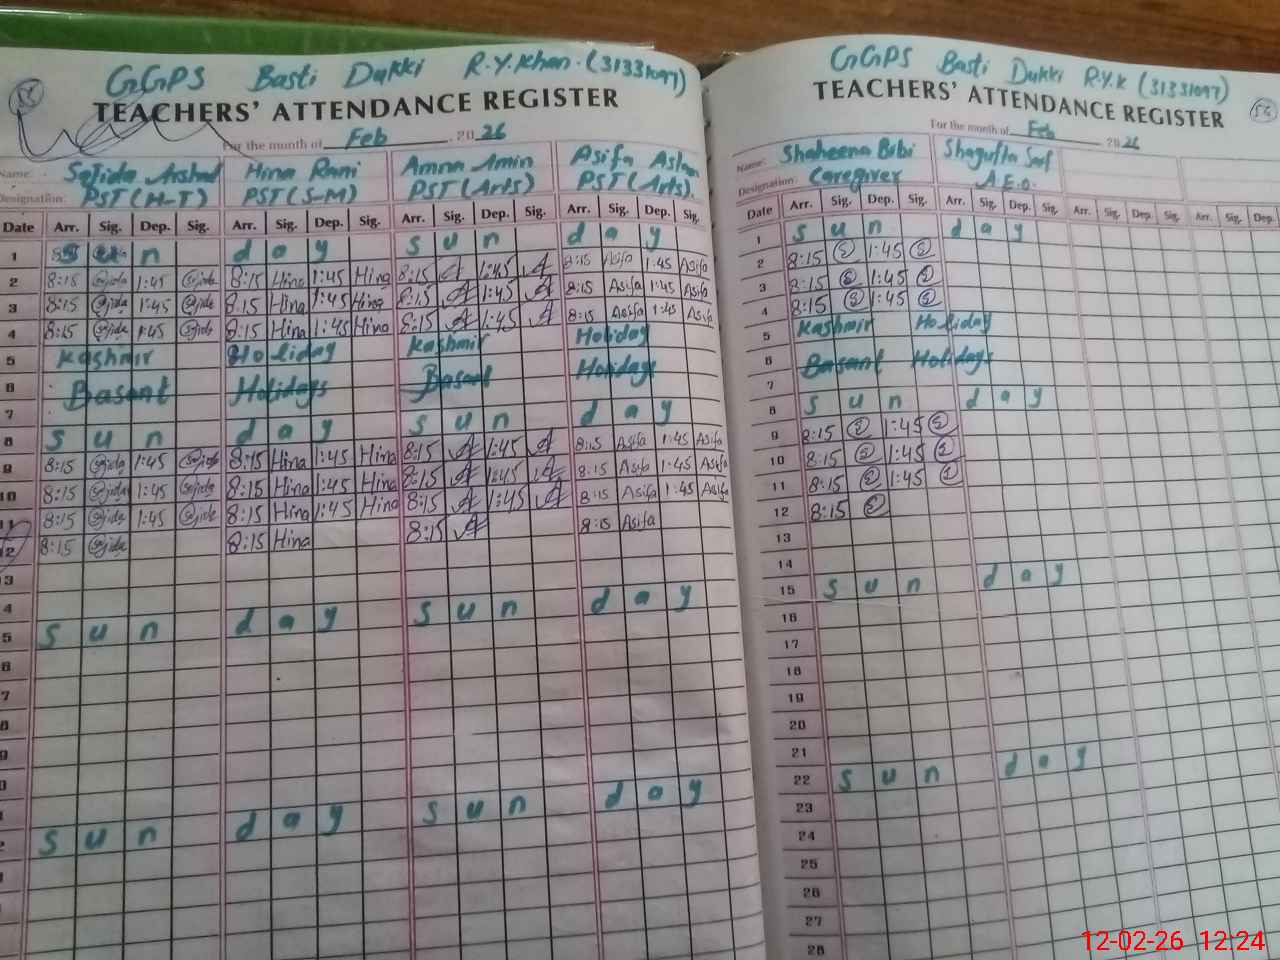 GGPS Basti Dukki R.Y.Khan. (31331097)
TEACHERS' ATTENDANCE REGISTER
For the month of Feb 20 26
Name: Sajida Arshad Hina Rani Amna Amin Asifa Aslam
Designation: PST (H-T) PST (S-M) PST (Arts) PST (Arts).
Date Arr. Sig. Dep. Sig. Arr. Sig. Dep. Sig. Arr. Sig. Dep. Sig. Arr. Sig. Dep. Sig.
1 n d a y s u n d a y
2 8:15 Sajida 1:45 Sajida 8:15 Hina 1:45 Hina 8:15 A 1:45 A 8:15 Asifa 1:45 Asifa
3 8:15 Sajida 1:45 Sajida 8:15 Hina 1:45 Hina 8:15 A 1:45 A 8:15 Asifa 1:45 Asifa
4 8:15 Sajida 1:45 Sajida 8:15 Hina 1:45 Hina 8:15 A 1:45 A 8:15 Asifa 1:45 Asifa
5 Kashmir Holiday Kashmir Holiday
6 Basant Holidays Basant Holidays
7
8 s u n d a y s u n d a y
9 8:15 Sajida 1:45 Sajida 8:15 Hina 1:45 Hina 8:15 A 1:45 A 8:15 Asifa 1:45 Asifa
10 8:15 Sajida 1:45 Sajida 8:15 Hina 1:45 Hina 8:15 A 1:45 A 8:15 Asifa 1:45 Asifa
11 8:15 Sajida 1:45 Sajida 8:15 Hina 1:45 Hina 8:15 A 1:45 A 8:15 Asifa 1:45 Asifa
12 8:15 Sajida 8:15 Hina 8:15 A 8:15 Asifa
3
4
5 s u n d a y s u n d a y
6
7
8
9
0
1
2 s u n d a y s u n d a y
GGPS Basti Dukki R.Y.K (31331097)
TEACHERS' ATTENDANCE REGISTER
56
For the month of Feb 20 26
Name: Shaheena Bibi Shagufta Saif
Designation: Caregiver A.E.O.
Date Arr. Sig. Dep. Sig. Arr. Sig. Dep. Sig. Arr. Sig. Dep. Sig. Arr. Sig. Dep.
1 s u n d a y
2 8:15 1:45
3 8:15 1:45
4 8:15 1:45
5 Kashmir Holiday
6 Basant Holidays
7
8 s u n d a y
9 8:15 1:45
10 8:15 1:45
11 8:15 1:45
12 8:15
13
14
15 s u n d a y
16
17
18
19
20
21
22 s u n d a y
23
24
25
26
27
28
12-02-26 12:24